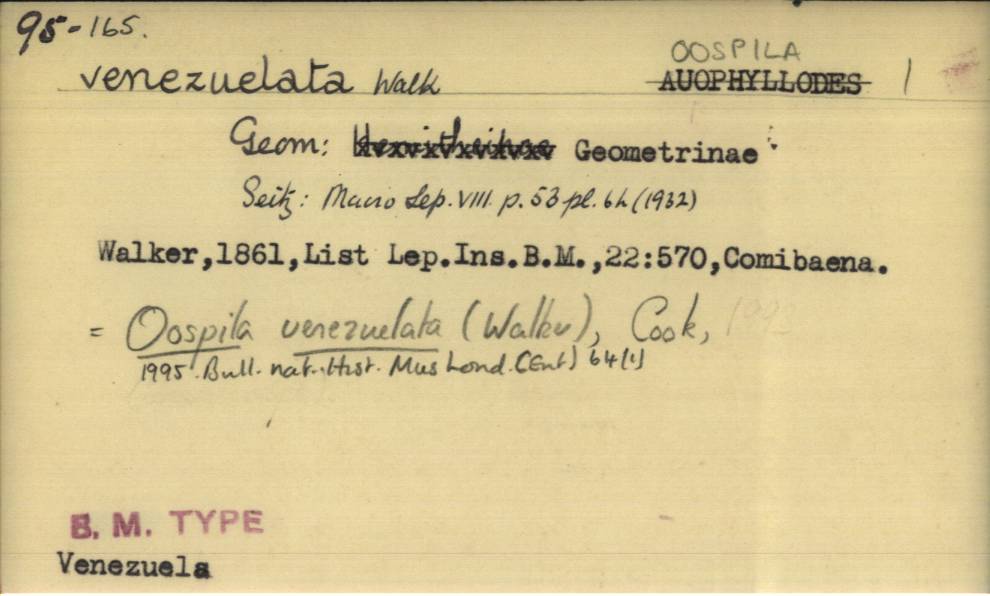 95-165.
OOSPILA
venezuelata Walk AUOPHYLLODES 1
Geom: Geometrinae
Seitz: Macro Lep. VIII. p. 53 pl. 6h (1932)
Walker,1861,List Lep.Ins.B.M.,22:570,Comibaena.
= Oospila venezuelata (Walker), Cook, 1993
1995. Bull. nat. Hist. Mus Lond. (Ent) 64(1)
B. M. TYPE
Venezuela